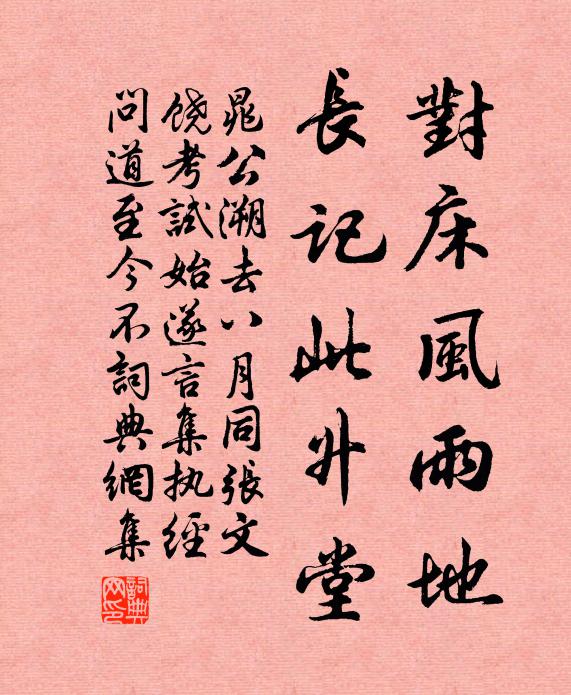 對床風雨地
長記此升堂
晁公溯去八月同張文
饒考試始遂言集执經
問道至今不詞典網集
詞典网印